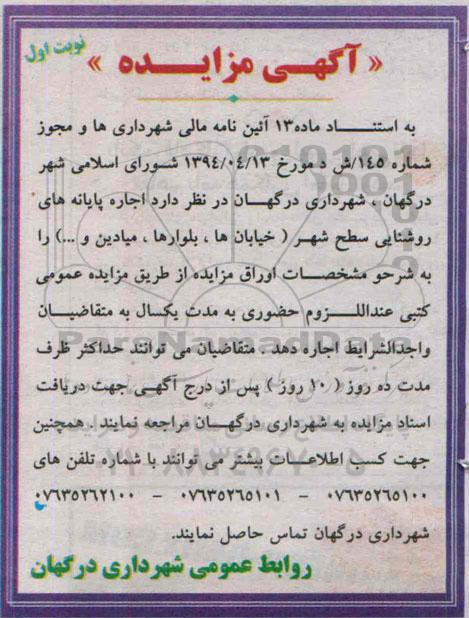 نوبت اول
« آگهـی مزایـــده »
به استنـــــاد ماده۱۳ آئین نامه مالی شهرداری ها و مجوز
شماره ۱۴۵/ش د مورخ ۱۳۹۴/۰۴/۱۳ شـورای اسلامی شهر
درگهان ، شهرداری درگهـــان در نظر دارد اجاره پایانه های
روشنایی سطح شهـر ( خیابان ها ، بلوارها ، میادین و ...) را
به شرحو مشخصـات اوراق مزایده از طریق مزایده عمومی
کتبی عنداللــزوم حضوری به مدت یکسال به متقاضیــان
واجدالشرایط اجاره دهد . متقاضیان می توانند حداکثر ظرف
مدت ده روز ( ۱۰ روز ) پس از درج آگهـی جهت دریافت
اسناد مزایده به شهرداری درگهــان مراجعه نمایند . همچنین
جهت کسب اطلاعـــات بیشتر می توانند با شماره تلفن های
۰۷۶۳۵۲۶۵۱۰۰ – ۰۷۶۳۵۲۶۵۱۰۱ – ۰۷۶۳۵۲۶۲۱۰۰
شهرداری درگهان تماس حاصل نمایند.
روابط عمومی شهرداری درگهان
ParsNamadData
۰۲۱-۸۸۳۴۹۶۷۰-۵